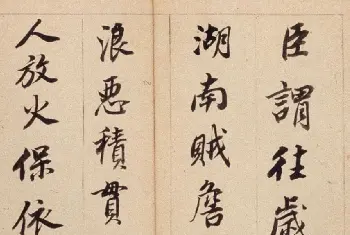 臣謂往歲
湖南賊詹
浪惡積貫
人放火保依